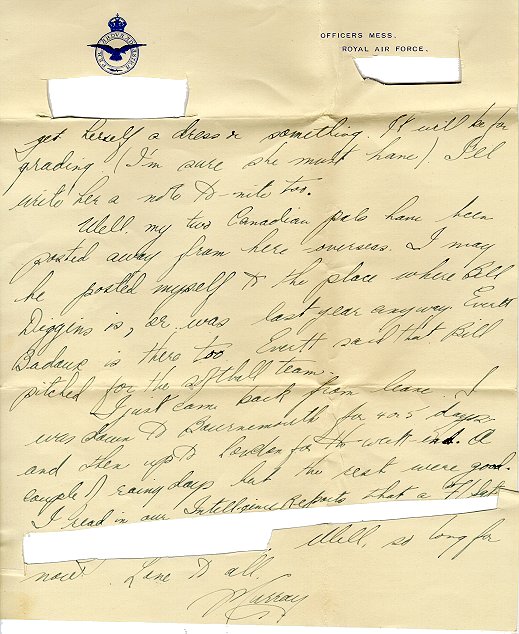 OFFICERS MESS.
ROYAL AIR FORCE.
get herself a dress or something. It will be for
grading (I'm sure she must have). I'll
write her a note to-nite too.
Well, my two Canadian pals have been
posted away from here overseas. I may
be posted myself to the place where Bill
Diggins is, or was last year anyway. Everett
Badaux is there too Everett said that Bill
pitched for the softball team.
I just came back from leave. I
was down to Bournemouth for 4 or 5 days
and then up to London for the week-end. A
couple of rainy days but the rest were good.
I read in our Intelligence Reports that a F/Lt
Well, so long for
now. Love to all.
Murray